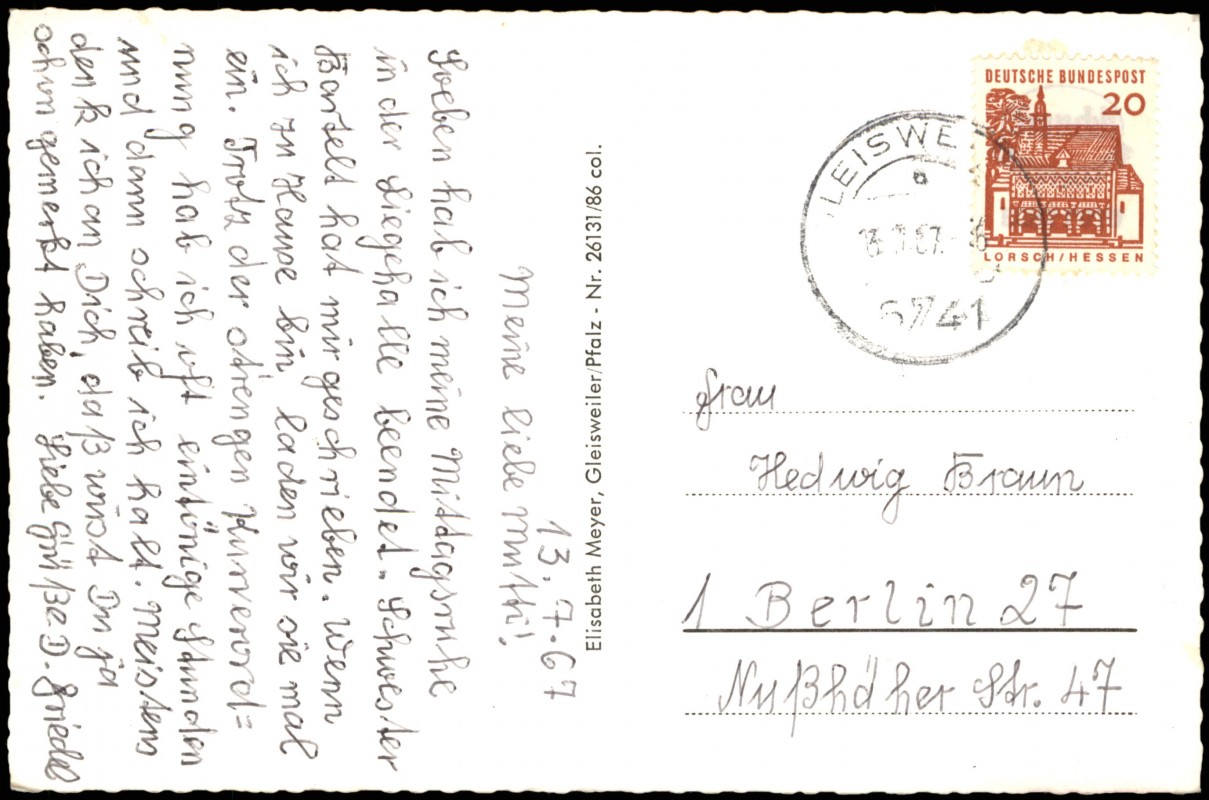 13.7.67
Meine liebe Mutti!
Soeben hab ich meine Mittagsruhe
in der Liegehalle beendet. Schwester
Bartelt hat mir geschrieben. Wenn
ich zu Hause bin, laden wir sie mal
ein. Trotz der strengen Kurverord=
nung hab ich oft eintönige Stunden
und dann schreib ich halt. Meistens
denk ich an Dich, daß wirst Du ja
schon gemerkt haben. Liebe Grüße D. Friedel
Elisabeth Meyer, Gleisweiler/Pfalz - Nr. 26131/86 col.
DEUTSCHE BUNDESPOST
20
LORSCH/HESSEN
LEISWE
6741
Frau
Hedwig Braun
1 Berlin 27
Nußhäher Str. 47